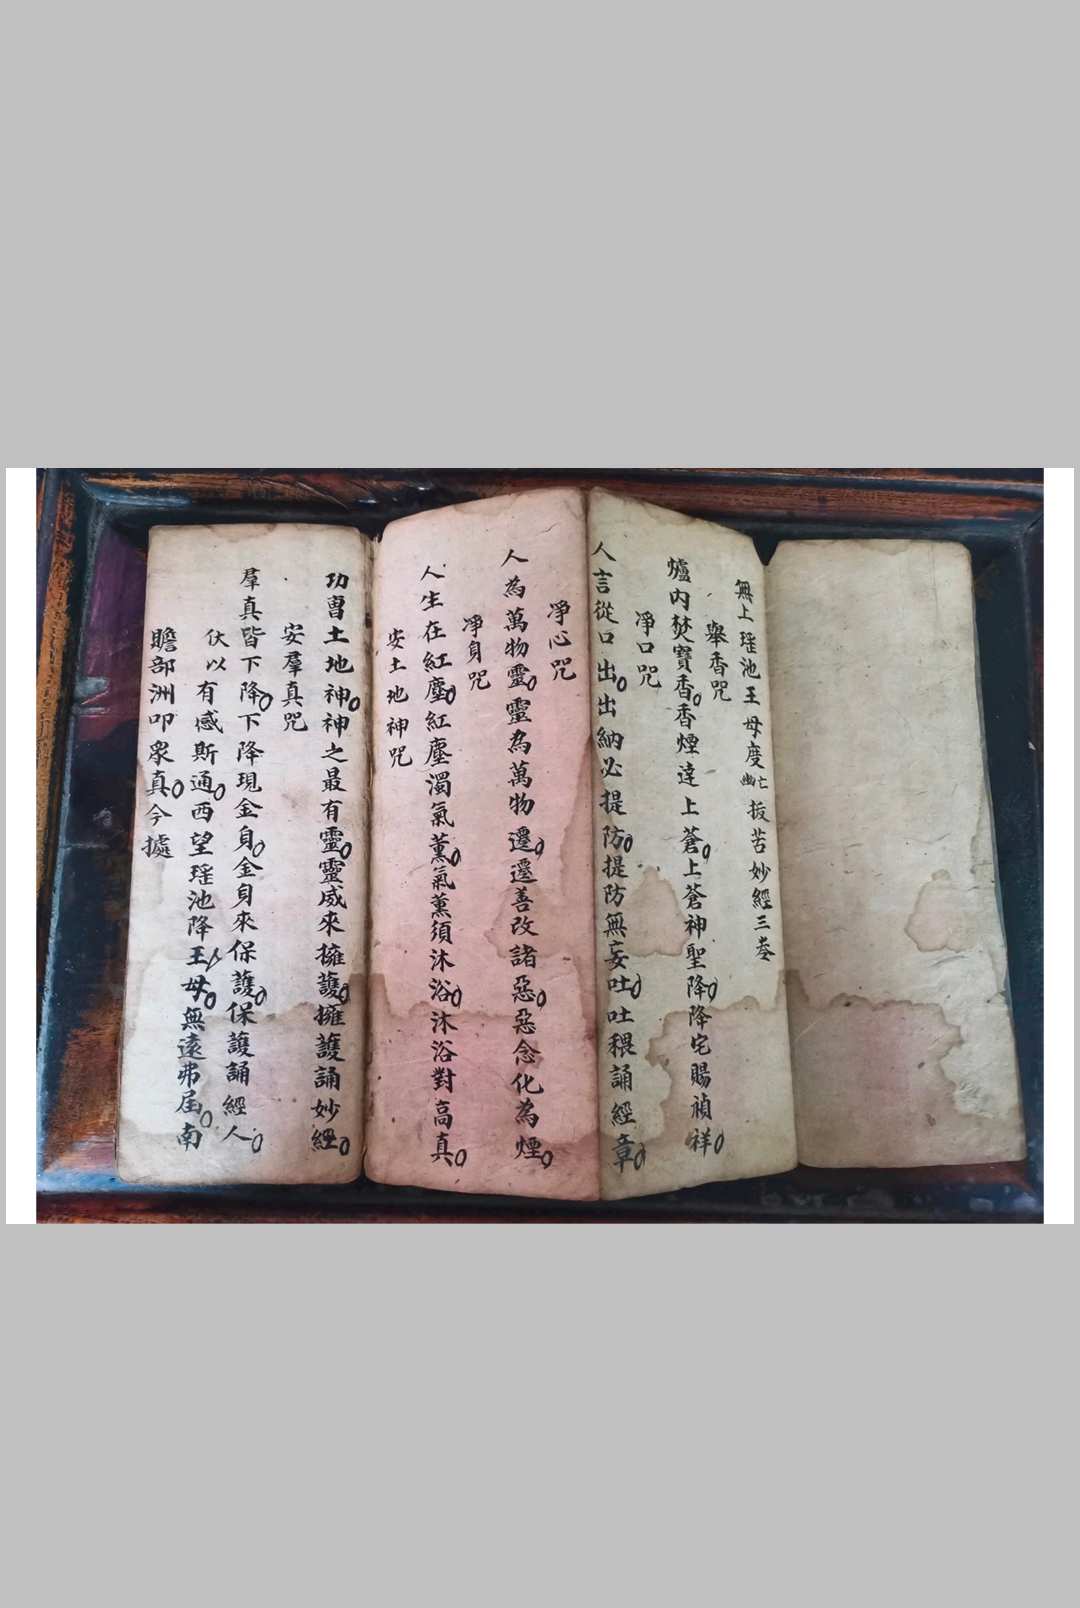 無上瑤池王母度亡幽拔苦妙經三卷
舉香咒
爐內焚寶香香煙達上蒼上蒼神聖降降宅賜禎祥
凈口咒
人言從口出出納必提防提防無妄吐吐穢誦經章
凈心咒
人為萬物靈靈為萬物遷遷善改諸惡惡念化為煙
凈身咒
人生在紅塵紅塵濁氣薰氣薰須沐浴沐浴對高真
安土地神咒
功曹土地神神之最有靈靈威來擁護擁護誦妙經
安羣真咒
羣真皆下降下降現金身金身來保護保護誦經人
伏以有感斯通西望瑤池降王母無遠弗屆南
贍部洲叩衆真今據